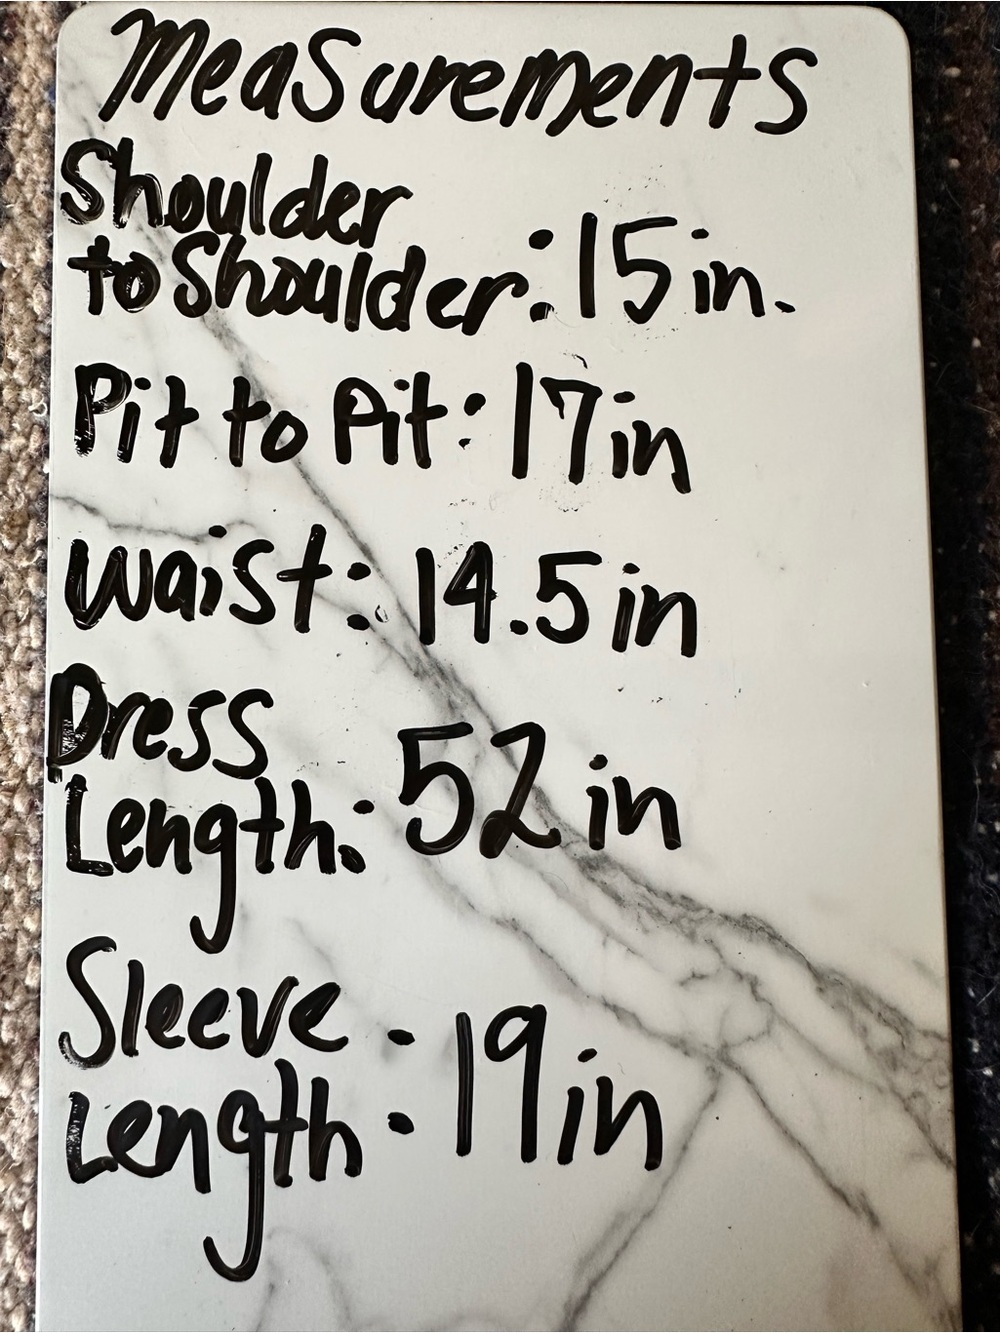 Measurements
Shoulder
to Shoulder: 15 in.
Pit to Pit: 17 in
Waist: 14.5 in
Dress
Length: 52 in
Sleeve
Length: 19 in